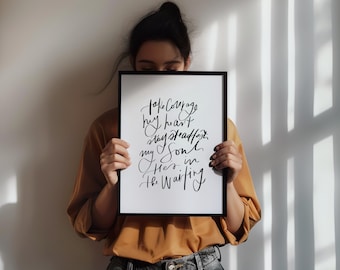 take Courage
my heart
stay steadfast
my Soul
He's in
the Waiting